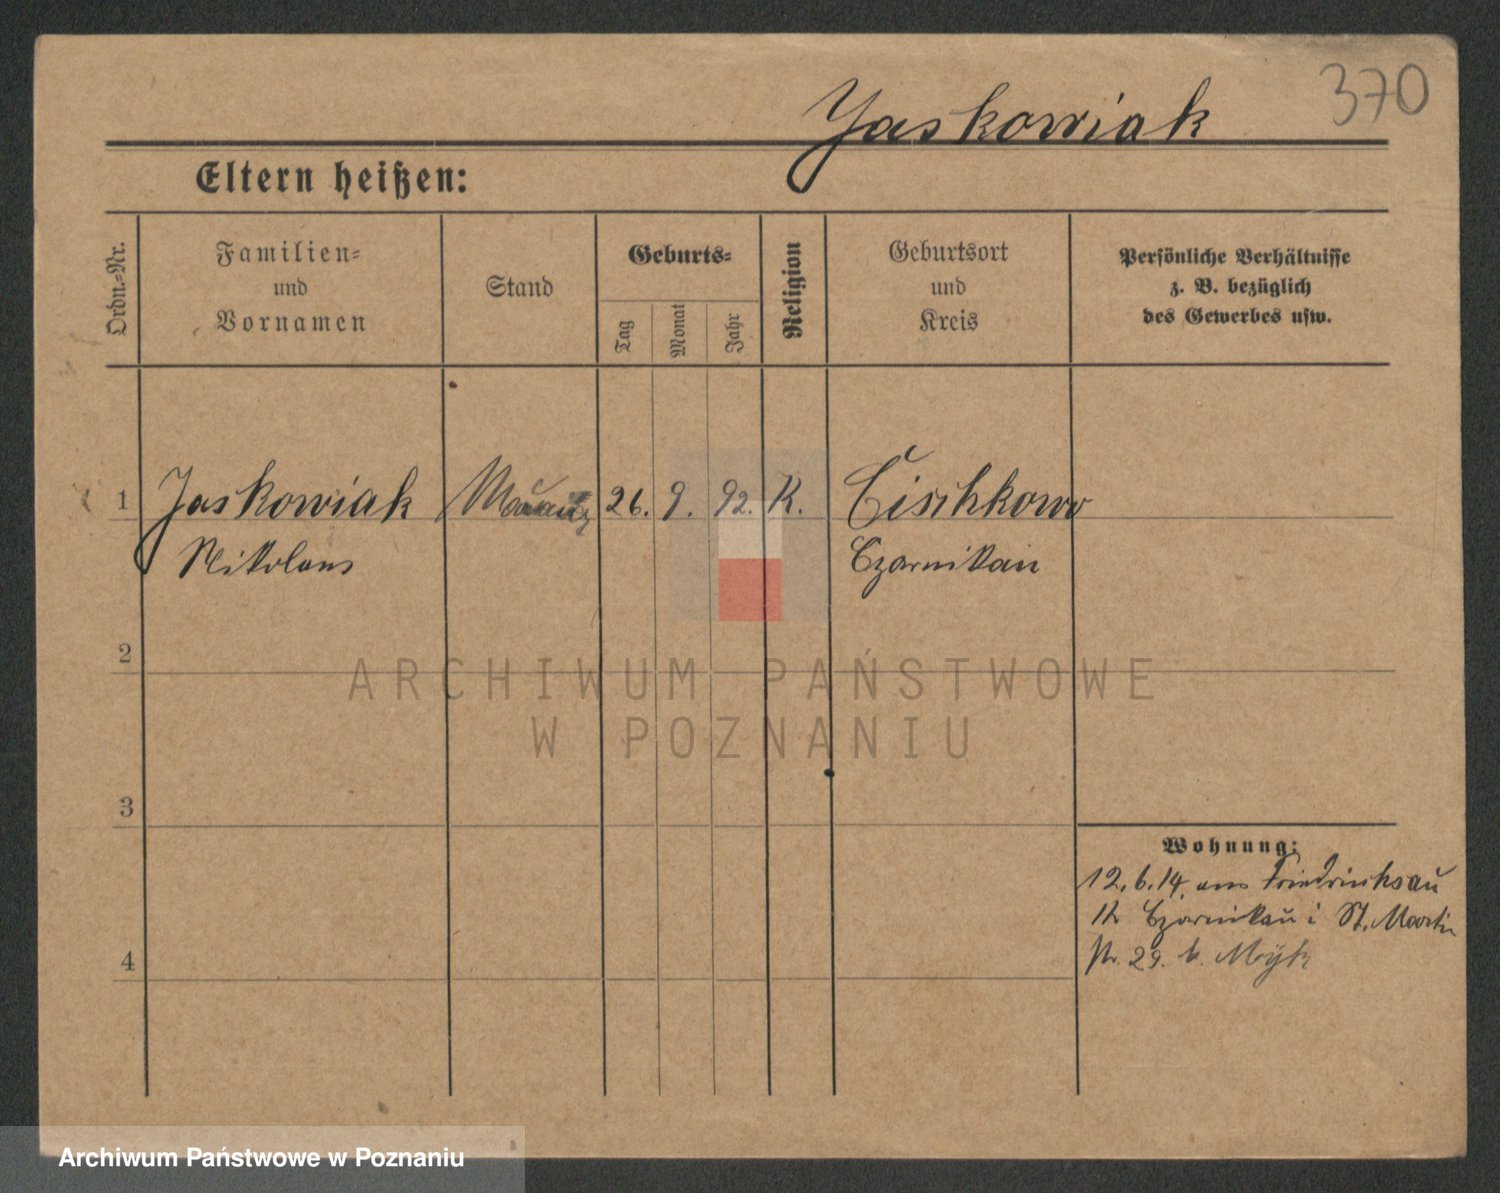 370
Jaskowiak
Eltern heißen:
Ordn.-Nr.
Familien- und Vornamen
Stand
Geburts-
Tag
Monat
Jahr
Religion
Geburtsort und Kreis
Persönliche Verhältnisse
z. B. bezüglich
des Gewerbes usw.
1 Jaskowiak 26. 9. 92. K. Cischkowo
Nikolaus Czarnikau
2
3
4
Wohnung:
12.6.14. aus Friedrichsau
Kr Czarnikau i St. Martin
str. 29. b.
ARCHIWUM PAŃSTWOWE
W POZNANIU
Archiwum Państwowe w Poznaniu